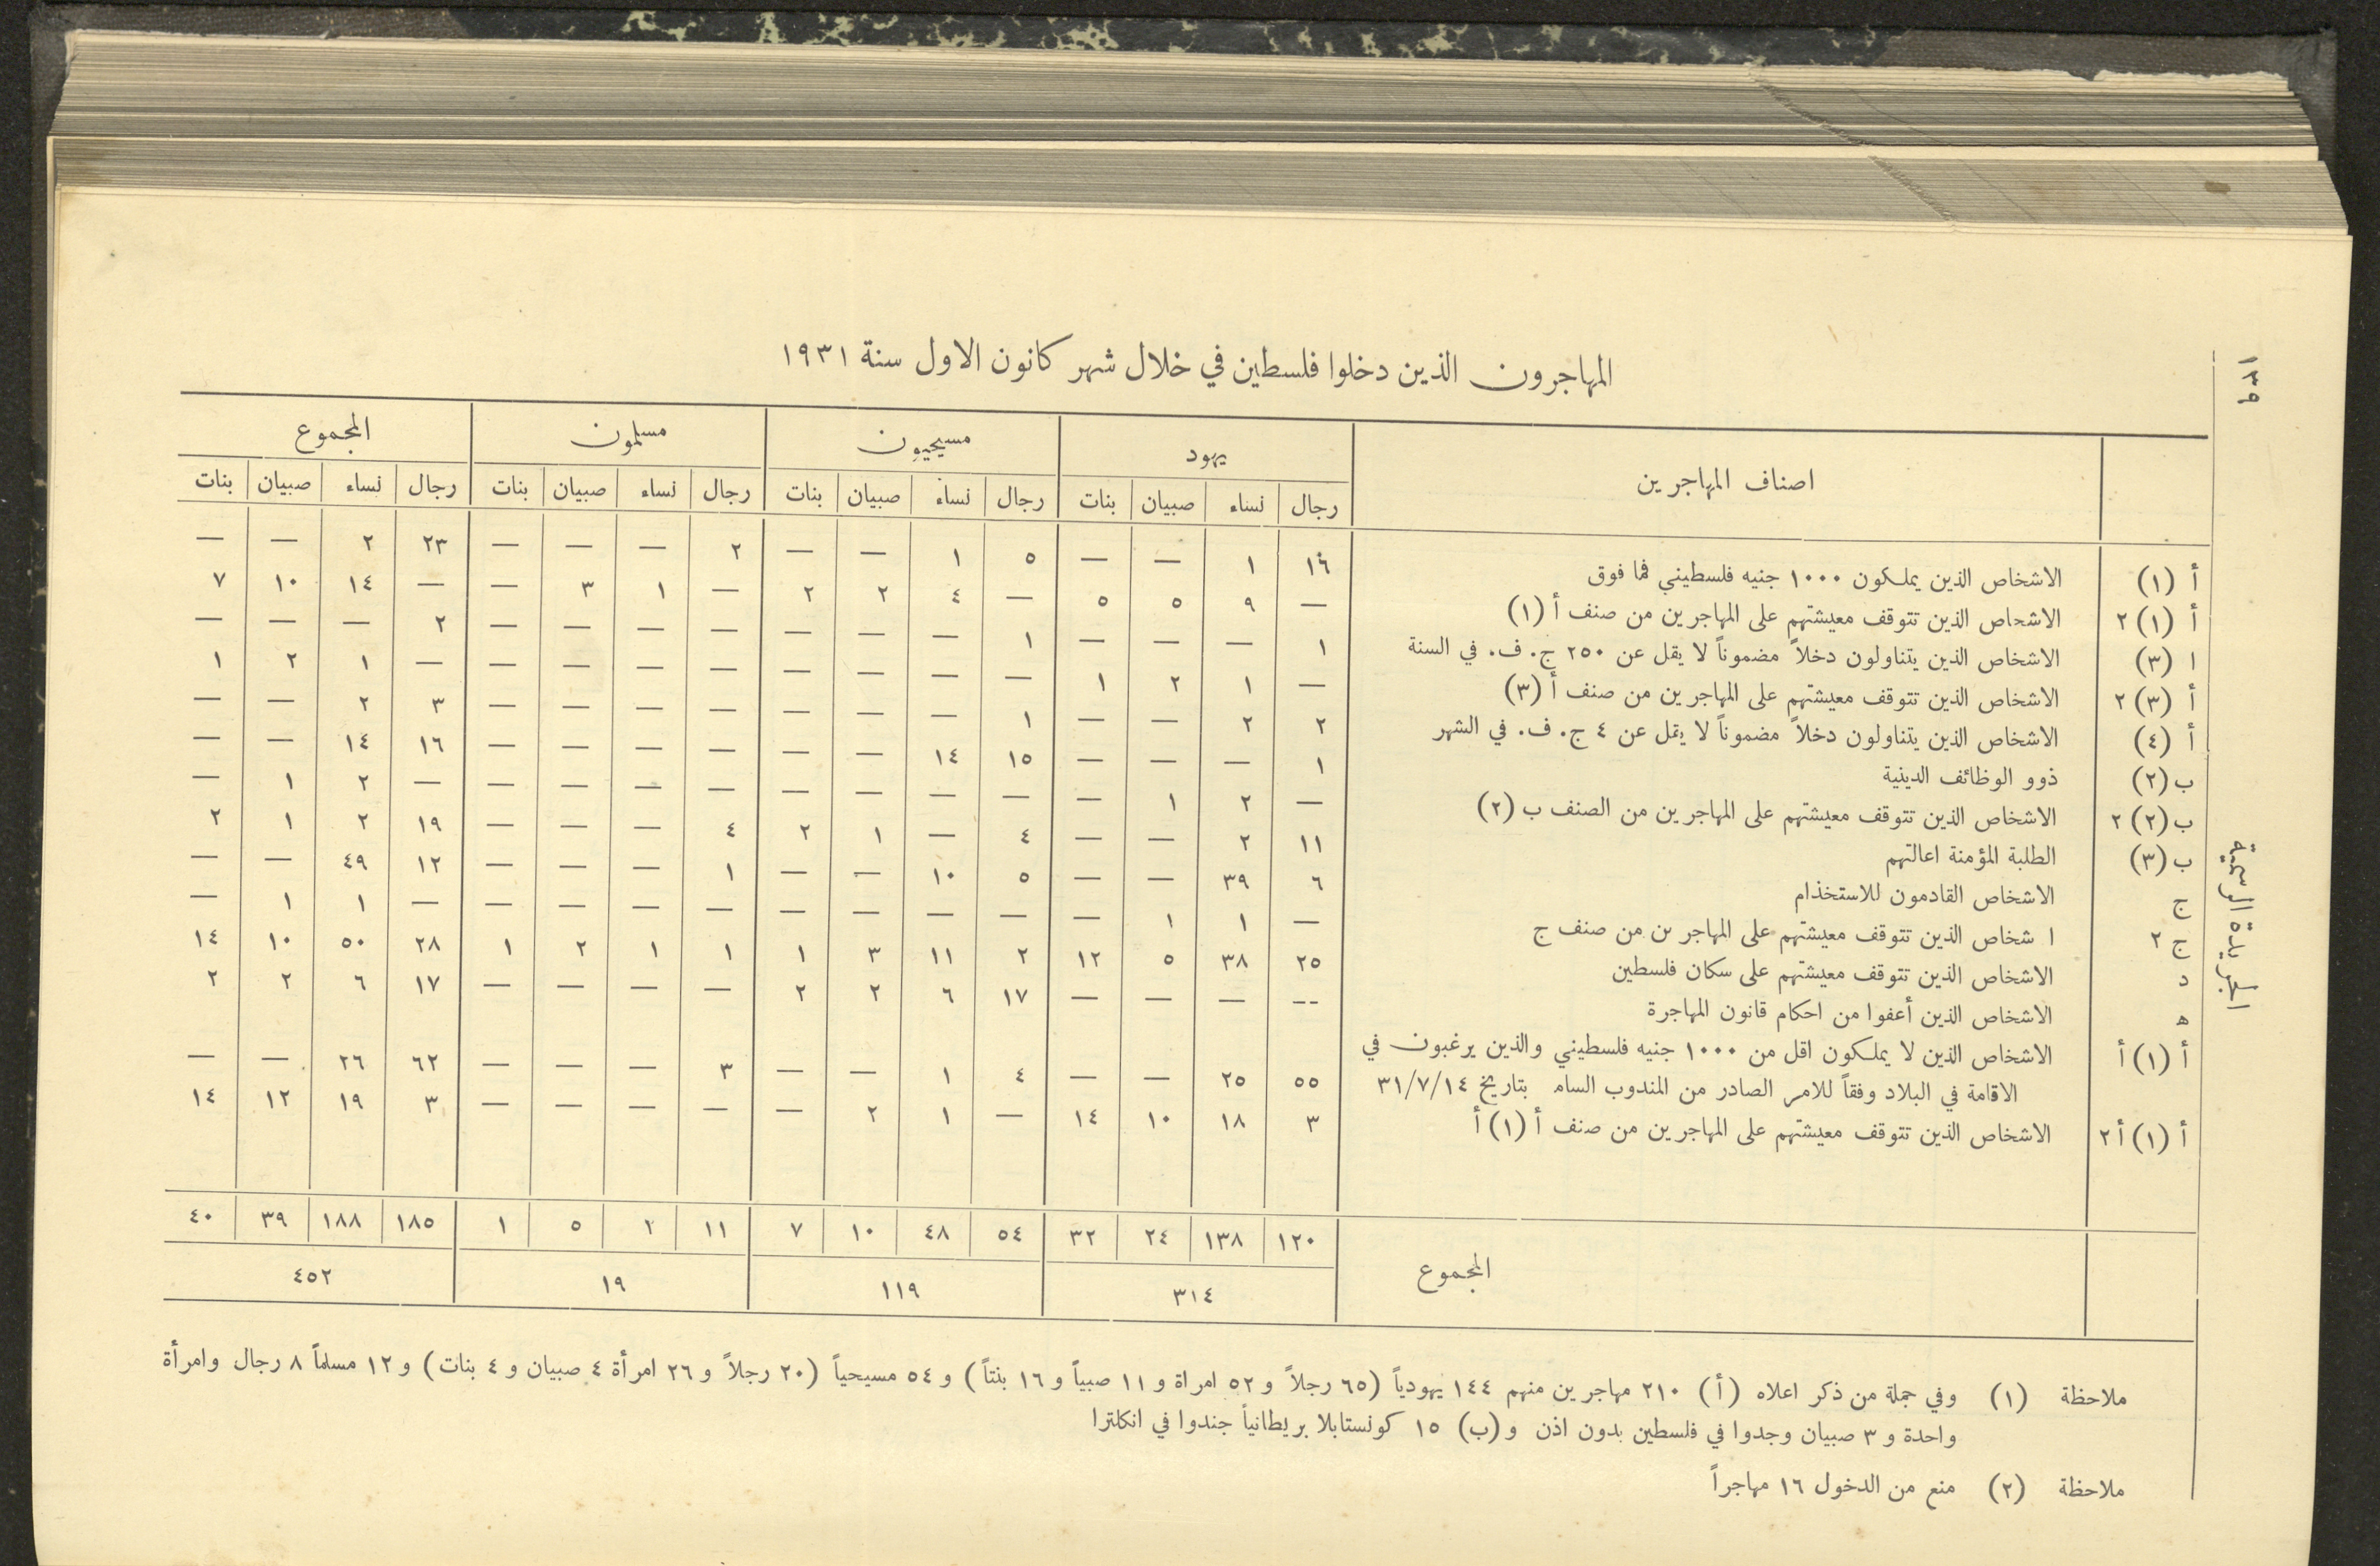 ١٣٩
الجريدة الرسمية
المهاجرون الذين دخلوا فلسطين في خلال شهر كانون الاول سنة ١٩٣١
اصناف المهاجرين | يهود | مسيحيون | مسلمون | المجموع
رجال | نساء | صبيان | بنات | رجال | نساء | صبيان | بنات | رجال | نساء | صبيان | بنات | رجال | نساء | صبيان | بنات
أ (١) | الاشخاص الذين يملكون ١٠٠٠ جنيه فلسطيني فما فوق | ١٦ | ١ | — | — | ٥ | ١ | — | — | ٢ | — | — | — | ٢٣ | ٢ | — | —
أ (١) ٢ | الاشخاص الذين تتوقف معيشتهم على المهاجرين من صنف أ (١) | — | ٩ | ٥ | ٥ | — | ٤ | ٢ | ٢ | — | ١ | ٣ | — | — | ١٤ | ١٠ | ٧
ا (٣) | الاشخاص الذين يتناولون دخلاً مضموناً لا يقل عن ٢٥٠ ج. ف. في السنة | ١ | — | — | — | ١ | — | — | — | — | — | — | — | ٢ | — | — | —
أ (٣) ٢ | الاشخاص الذين تتوقف معيشتهم على المهاجرين من صنف أ (٣) | — | ١ | ٢ | ١ | — | — | — | — | — | — | — | — | — | ١ | ٢ | ١
أ (٤) | الاشخاص الذين يتناولون دخلاً مضموناً لا يقل عن ٤ ج. ف. في الشهر | ٢ | ٢ | — | — | ١ | — | — | — | — | — | — | — | ٣ | ٢ | — | —
ب (٢) | ذوو الوظائف الدينية | ١ | — | — | — | ١٥ | ١٤ | — | — | — | — | — | — | ١٦ | ١٤ | — | —
ب (٢) ٢ | الاشخاص الذين تتوقف معيشتهم على المهاجرين من الصنف ب (٢) | — | ٢ | ١ | — | — | — | — | — | — | — | — | — | — | ٢ | ١ | —
ب (٣) | الطلبة المؤمنة اعالتهم | ١١ | ٢ | — | — | ٤ | — | ١ | ٢ | ٤ | — | — | — | ١٩ | ٢ | ١ | ٢
ج | الاشخاص القادمون للاستخدام | ٦ | ٣٩ | — | — | ٥ | ١٠ | — | — | ١ | — | — | — | ١٢ | ٤٩ | — | —
ج ٢ | ا شخاص الذين تتوقف معيشتهم على المهاجرين من صنف ج | — | ١ | ١ | — | — | — | — | — | — | — | — | — | — | ١ | ١ | —
د | الاشخاص الذين تتوقف معيشتهم على سكان فلسطين | ٢٥ | ٣٨ | ٥ | ١٢ | ٢ | ١١ | ٣ | ١ | ١ | ١ | ٢ | ١ | ٢٨ | ٥٠ | ١٠ | ١٤
ه | الاشخاص الذين أعفوا من احكام قانون المهاجرة | -- | — | — | — | ١٧ | ٦ | ٢ | ٢ | — | — | — | — | ١٧ | ٦ | ٢ | ٢
أ (١) أ | الاشخاص الذين لا يملكون اقل من ١٠٠٠ جنيه فلسطيني والذين يرغبون في
الاقامة في البلاد وفقاً للامر الصادر من المندوب السام بتاريخ ٣١/٧/١٤ | ٥٥ | ٢٥ | — | — | ٤ | ١ | — | — | ٣ | — | — | — | ٦٢ | ٢٦ | — | —
أ (١) أ ٢ | الاشخاص الذين تتوقف معيشتهم على المهاجرين من صنف أ (١) أ | ٣ | ١٨ | ١٠ | ١٤ | — | ١ | ٢ | — | — | — | — | — | ٣ | ١٩ | ١٢ | ١٤
المجموع | ١٢٠ | ١٣٨ | ٢٤ | ٣٢ | ٥٤ | ٤٨ | ١٠ | ٧ | ١١ | ٢ | ٥ | ١ | ١٨٥ | ١٨٨ | ٣٩ | ٤٠
٣١٤ | ١١٩ | ١٩ | ٤٥٢
ملاحظة (١) وفي جملة من ذكر اعلاه (أ) ٢١٠ مهاجرين منهم ١٤٤ يهودياً (٦٥ رجلاً و ٥٢ امراة و ١١ صبياً و ١٦ بنتاً) و ٥٤ مسيحياً (٢٠ رجلاً و ٢٦ امرأة ٤ صبيان و ٤ بنات) و ١٢ مسلماً ٨ رجال وامرأة
واحدة و ٣ صبيان وجدوا في فلسطين بدون اذن و (ب) ١٥ كونستابلا بريطانياً جندوا في انكلترا
ملاحظة (٢) منع من الدخول ١٦ مهاجراً